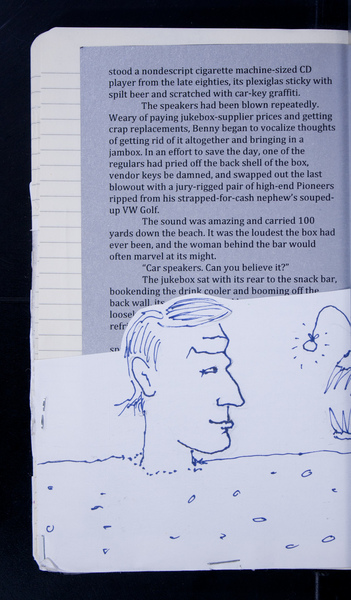 stood a nondescript cigarette machine-sized CD
player from the late eighties, its plexiglas sticky with
spilt beer and scratched with car-key graffiti.
The speakers had been blown repeatedly.
Weary of paying jukebox-supplier prices and getting
crap replacements, Benny began to vocalize thoughts
of getting rid of it altogether and bringing in a
jambox. In an effort to save the day, one of the
regulars had pried off the back shell of the box,
vendor keys be damned, and swapped out the last
blowout with a jury-rigged pair of high-end Pioneers
ripped from his strapped-for-cash nephew's souped-
up VW Golf.
The sound was amazing and carried 100
yards down the beach. It was the loudest the box had
ever been, and the woman behind the bar would
often marvel at its might.
"Car speakers. Can you believe it?"
The jukebox sat with its rear to the snack bar,
bookending the drink cooler and booming off the
back wall, its